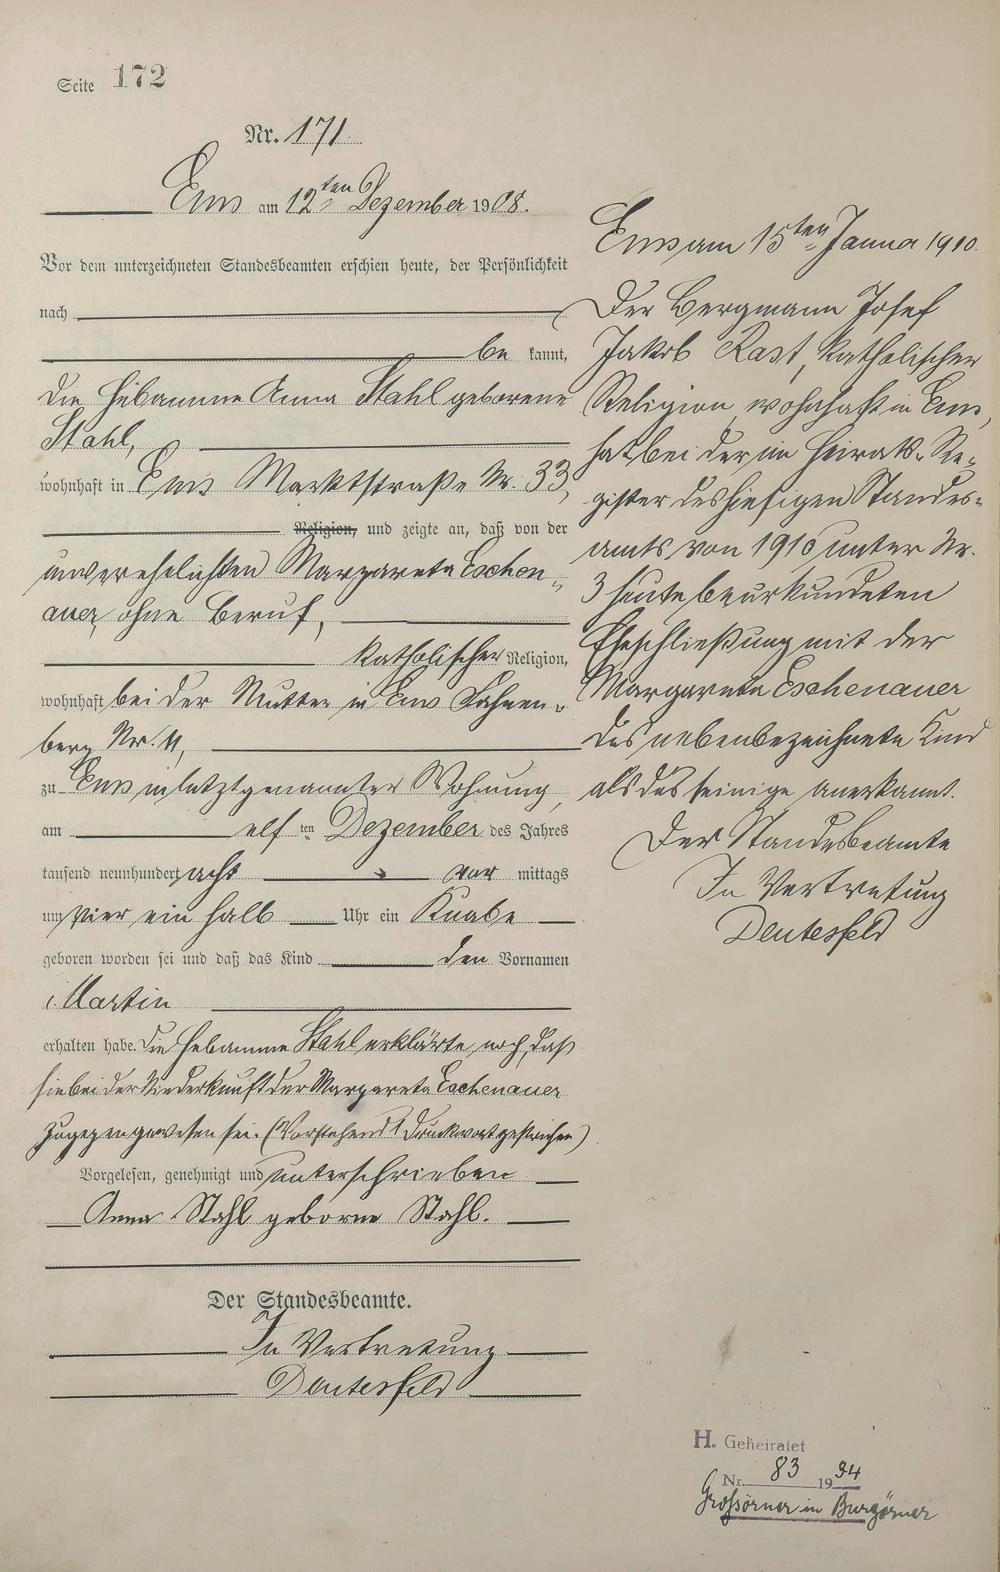 Seite 172
Nr. 171.
Ems am 12ten Dezember 1908.
Vor dem unterzeichneten Standesbeamten erschien heute, der Persönlichkeit
nach
be kannt,
die Hebamme Anna Stahl geborene
Stahl,
wohnhaft in Ems Marktstraße Nr. 33,
Religion, und zeigte an, daß von der
unverehelichten Margareta Eschen-
auer, ohne Beruf,
katholischer Religion,
wohnhaft bei der Mutter in Ems Fahnen-
berg Nr. 11,
zu Ems in letztgenannter Wohnung,
am elf ten Dezember des Jahres
tausend neunhundert acht vor mittags
um vier ein halb Uhr ein Knabe
geboren worden sei und daß das Kind den Vornamen
Martin
erhalten habe. Die Hebamme Stahl erklärte noch, daß
sie bei der Niederkunft der Margareta Eschenauer
zugegen gewesen sei. (Vorstehend 1 Druckwort gestrichen)
Vorgelesen, genehmigt und unterschrieben
Anna Stahl geborne Stahl.
Der Standesbeamte.
In Vertretung
Deutesfeld
Ems am 15ten Januar 1910.
Der Bergmann Josef
Jakob Rast, katholischer
Religion, wohnhaft in Ems,
hat bei der im Heirats-Re-
gister des hiesigen Standes-
amts von 1910 unter Nr.
3 heute beurkundeten
Eheschließung mit der
Margareta Eschenauer
das nebenbezeichnete Kind
als das seinige anerkannt.
Der Standesbeamte
In Vertretung
Deutesfeld
H. Geheiratet
Nr. 83 1934
Grossörner in Burgörner